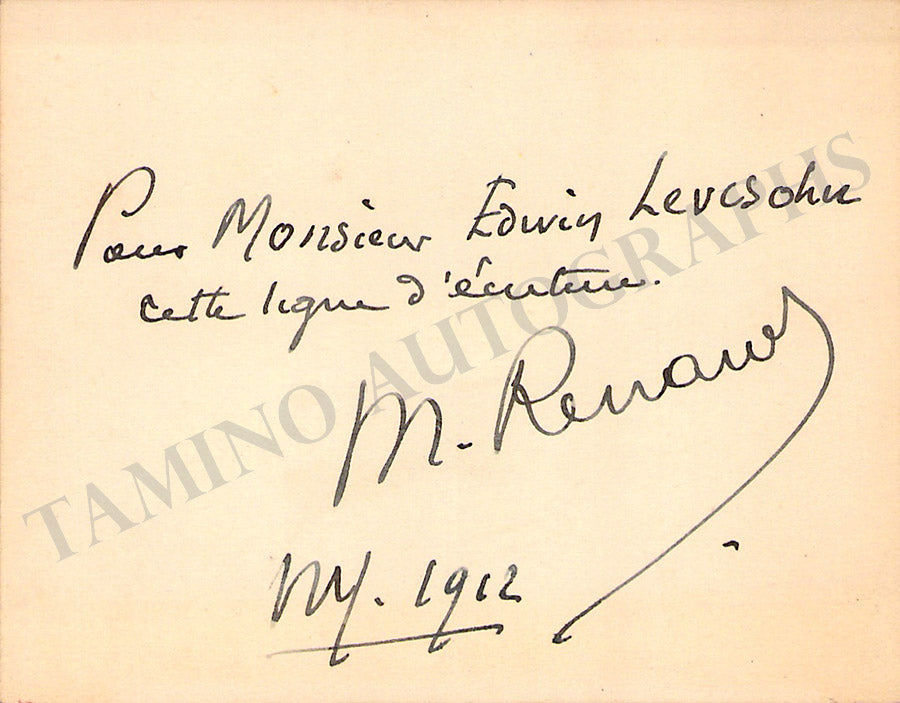 Pour Monsieur Edwin Levesohn
cette ligne d'écriture.
M. Renaud
NY. 1912
TAMINO AUTOGRAPHS